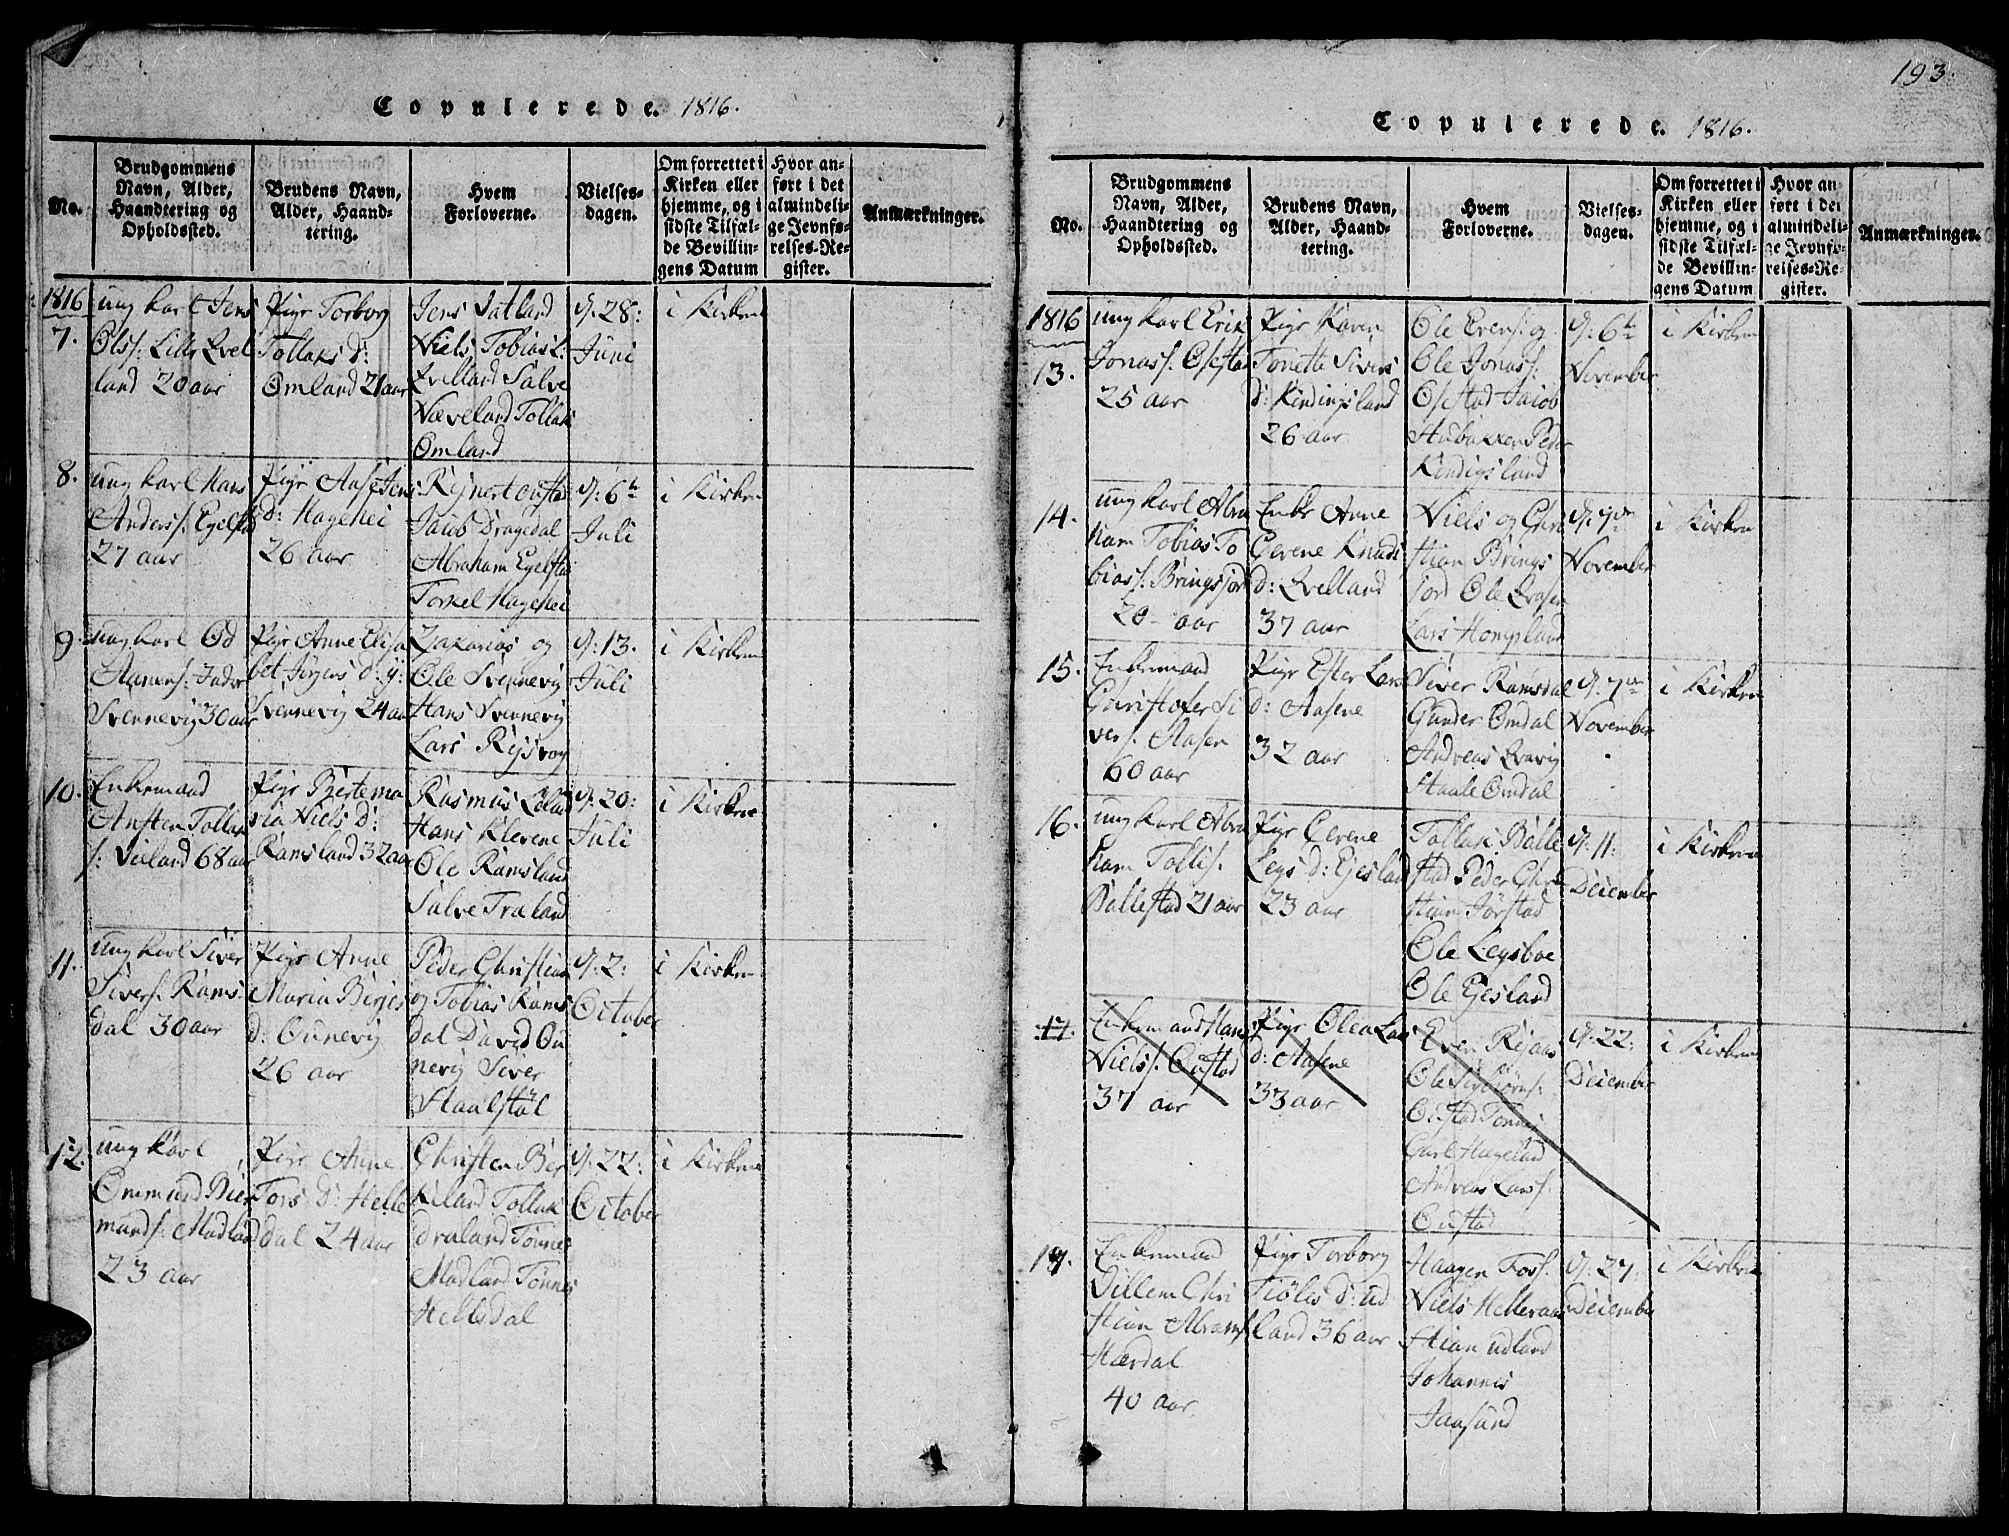 Copulerede. 1816.
No.
Brudgommens
Navn, Alder,
Haandtering og
Opholdssted.
Brudens Navn,
Alder, Haand-
tering.
Hvem
Forloverne.
Vielses-
dagen.
Om forrettet i
Kirken eller
hjemme, og i
sidste Tilfæl-
de Bevillin-
gens Datum
Hvor an-
ført i det
almindeli-
ge Jevnfø-
relses-Re-
gister.
Anmærkninger.
1816
7.
ung karl Jens
Olss: Lille Qvel
land 20 aar
Pige Torborg
Tollaks d:
Omland 21 aar
Jens Vatland
Niels Tobias L:
Qvelland Salve
Næveland Tollak
Omland
d: 28:
Juni
i Kirken
8.
ung karl Hans
Anderss: Egelstad
27 aar
Pige Aase Jens
d: Hagehei
26 aar
Rejnert
Jacob Dragedal
Abraham Egelstad
Torkel Hagehei
d: 6te
Juli
i Kirken
9.
ung karl Od
Aanens:
Svennevig 30 aar
Pige Anne Elisa
bet Jørgens d: y:
Svennevig 24 aar
Zakarias og
Ole Svennevig
Hans Svennevig
Lars Rejsvog
d: 13.
Juli
i Kirken
10.
Enkemand
Ansten Tollak
s: Vieland 68 aar
Pige Bertema
ria Niels d:
Ramsland 32 aar
Rasmus Løland
Hans Klevene
Ole Ramsland
Salve Træland
d: 20:
Juli
i Kirken
11.
ung karl Siver
Sivers: Rams
dal 30 aar
Pige Anne
Maria Birjes
d: Ounevig
26 aar
Peder Christian
og Tobias Rams
dal David Ou
nevig Siver
Staalstøl
d: 2:
October
i Kirken
12.
ung karl
Ommund Bier
mands: Madland
23 aar
Pige Anne
Tors d: Helle
dal 24 aar
Christen Bir
keland Tollak
Draland Tønnes
Madland Tønnes
Helledal
d: 22:
October
i Kirken
193.
Copulerede. 1816.
No.
Brudgommens
Navn, Alder,
Haandtering og
Opholdssted.
Brudens Navn,
Alder, Haand-
tering.
Hvem
Forloverne.
Vielses-
dagen.
Om forrettet i
Kirken eller
hjemme, og i
sidste Tilfæl-
de Bevillin-
gens Datum
Hvor an-
ført i det
almindeli-
ge Jevnfø-
relses-Re-
gister.
Anmærkninger.
1816
13.
ung karl Erik
Jonass: Ofstad
25 aar
Pige Karen
Tonette Sivers
d: Kindingsland
26 aar
Ole Evens: og
Ole Jonass:
Ofstad Jacob
Aubakken Peder
Kindigsland
d: 6te
November
i Kirken
14.
ung karl Abra
ham Tobias To
biass: Bringsjord
20 aar
Enke Anne
Gerene Knuds
d: Qvelland
37 aar
Niels og Chri
stian Brings
jord Ole Qvasen
Lars Hompland
d: 7de
November
i Kirken
15.
Enkemand
Christofer Si
vers: Aasen
60 aar
Pige Ester Lars
d: Aasene
32 aar
Siver Ramsdal
Gunder Omdal
Andreas Qvavig
Staale Omdal
d: 7de
November
i Kirken
16.
ung karl Abra
ham Tollis:
Ballestad 21 aar
Pige Gerene
Legs d: Egesland
23 aar
Tollak Balle
stad Peder Chri
stian Jørstad
Ole Legsboe
Ole Egesland
d: 11:
December
i Kirken
17.
Enkemand Hans
Niels: Oustad
37 aar
Pige Olea Lars
d: Aasene
33 aar
Even Rejaas
Ole Sigbiørns:
Oustad Tønnes
Carl Hageland
Andreas Larss:
Oustad
d: 22:
December
i Kirken
17.
Enkemand
Villem Chri
stian Abrams:
Hærdal
40 aar
Pige Torborg
Fiøles d: ud
land 36 aar
Haagen Fors:
Niels Helleraas
Stian udland
Johannes
Jaasund
d: 27:
December
i Kirken